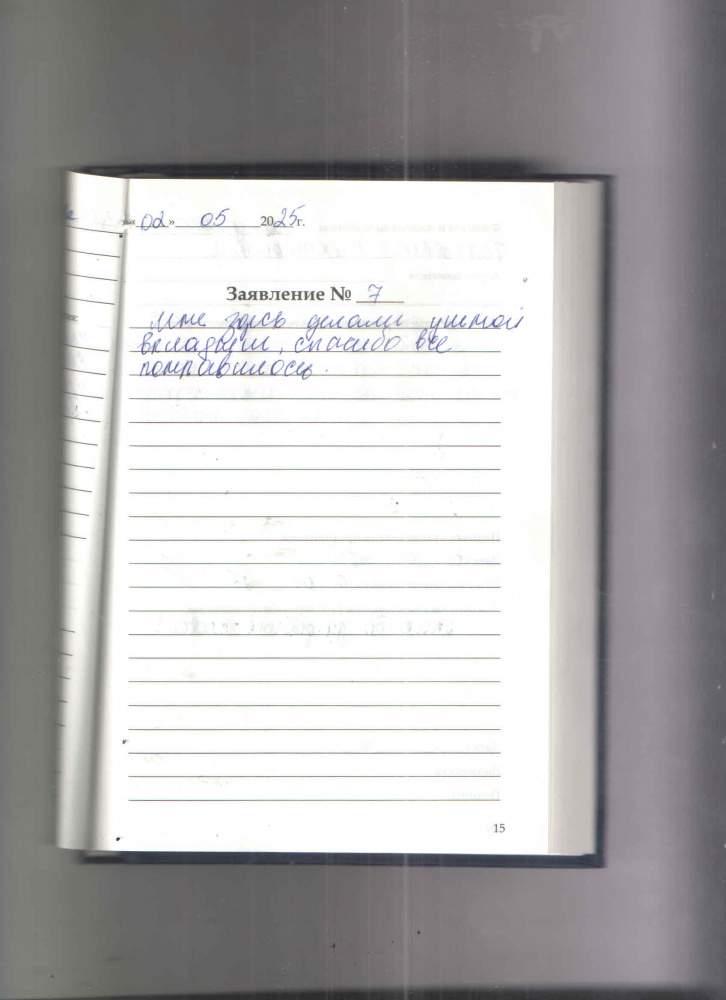 «02» 05 2025г.
Заявление № 7
Мне здесь делали ушной
вкладыш, спасибо все
понравилось.
15